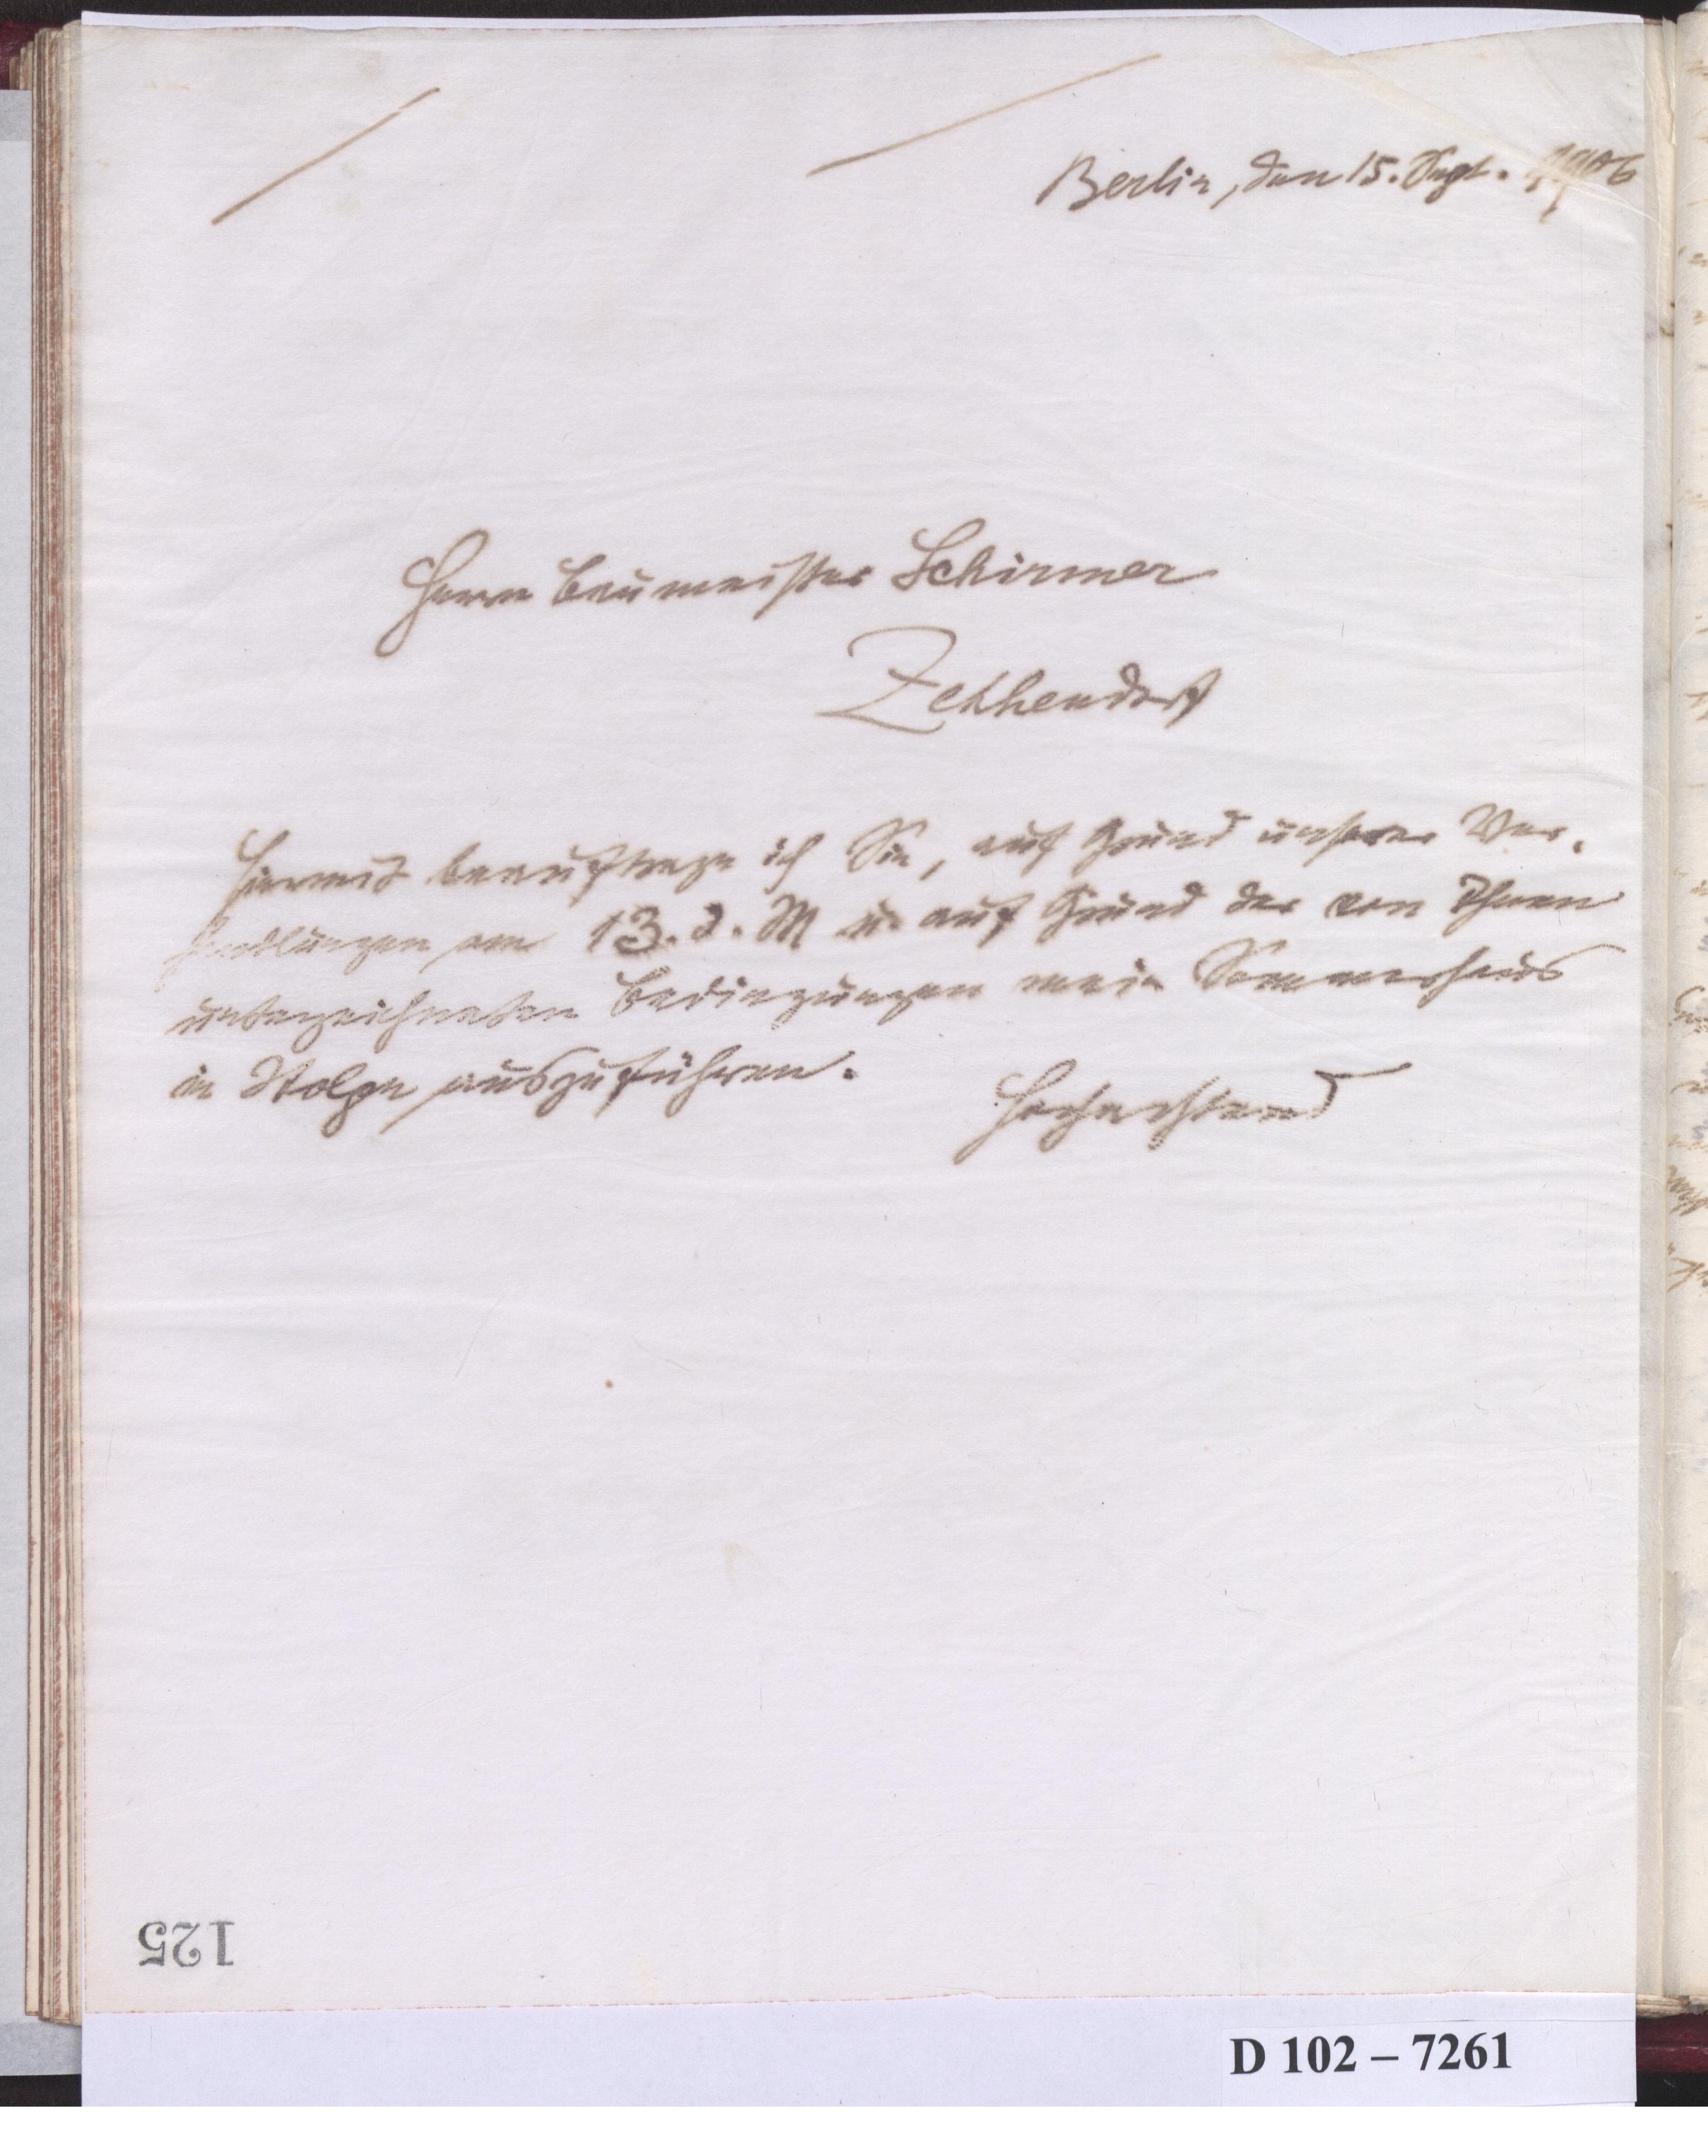 Berlin, den 15. Sept. 1906
Herrn Baumeister Schirmer
Zehlendorf
Hiermit beauftrage ich Sie, auf Grund unserer Ver-
handlungen am 13. d. M u. auf Grund der von Ihnen
unterzeichneten Bedingungen mein Sommerhaus
in Stolpe auszuführen.
Hochachtend
125
D 102 – 7261